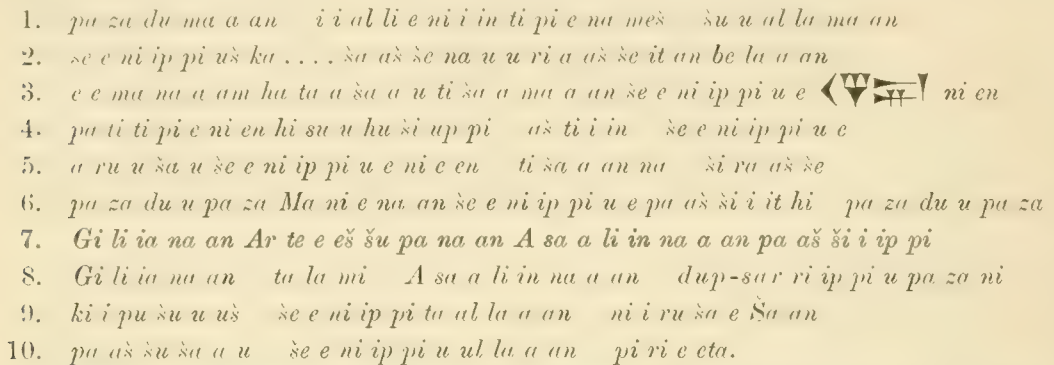 1. pa za du ma a an i i al li e ni i in ti pi e na meš šu u al la ma an
2. še e ni ip pi uš ka .... ša aš še na u u ri a aš še it an be la a an
3. e e ma na a am ha ta a ša a u ti ša a ma a an še e ni ip pi u e ni en
4. pa ti ti pi e ni en hi su u hu ši up pi aš ti i in še e ni ip pi u e
5. a ru u ša u še e ni ip pi u e ni e en ti ša a an na ši ra aš še
6. pa za du u pa za Ma ni e na an še e ni ip pi u e pa aš ši i it hi pa za du u pa za
7. Gi li ia na an Ar te e eš šu pa na an A sa a li in na a an pa aš ši i ip pi
8. Gi li ia na an ta la mi A sa a li in na a an dup-sar ri ip pi u pa za ni
9. ki i pu šu u uš še e ni ip pi ta al la a an ni i ru ša e Ša an
10. pa aš šu ša a u še e ni ip pi u ul la a an pi ri e eta.